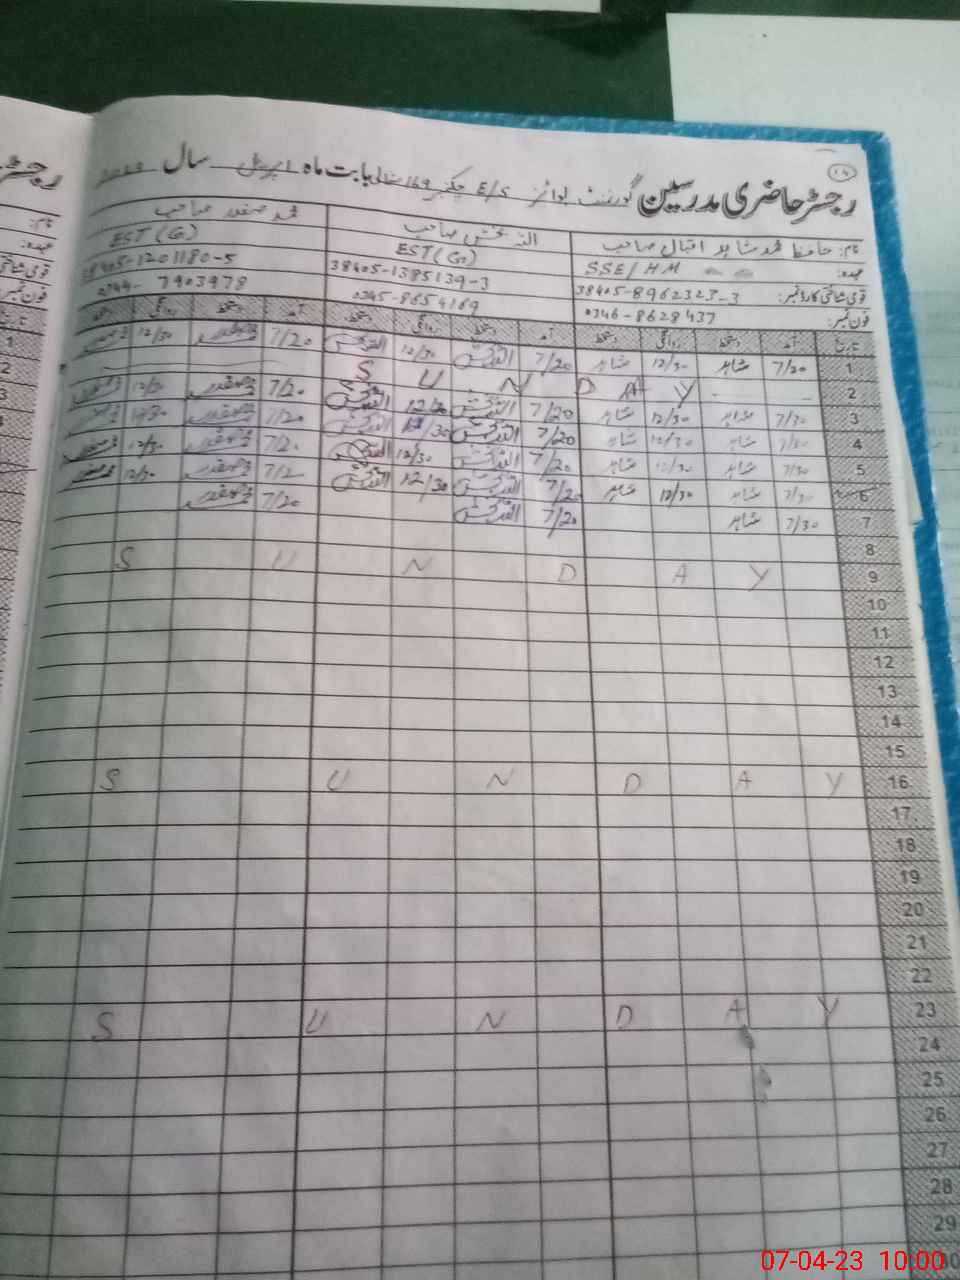 ۱۴
رجسٹر حاضری مدرسین گورنمنٹ بوائز E/S چک نمبر 169 شمالی بابت ماہ اپریل سال
نام: حافظ محمد شاہد اقبال صاحب
اللہ بخش صاحب
محمد صفدر صاحب
عہدہ: SSE/HM
EST(G)
EST(G)
قومی شناختی کارڈ نمبر: 38405-8962323-3
38405-1385139-3
38405-1201180-5
فون نمبر: 0346-8628437
0345-8654169
7903978
تاریخ آمد دستخط روانگی دستخط آمد دستخط روانگی دستخط آمد دستخط روانگی دستخط
1 7/20 شاہد 12/30 شاہد 7/20 اللہ بخش 12/30 اللہ بخش 7/20 محمد صفدر 12/30
2 S U N D A Y
3 7/30 شاہد 12/30 شاہد 7/20 اللہ بخش 12/30 اللہ بخش 7/20 محمد صفدر 12/30
4 7/30 شاہد 12/30 شاہد 7/20 اللہ بخش 12/30 اللہ بخش 7/20 محمد صفدر 12/30
5 7/30 شاہد 12/30 شاہد 7/20 اللہ بخش 12/30 اللہ بخش 7/20 محمد صفدر 12/30
6 7/30 شاہد 12/30 شاہد 7/20 اللہ بخش 12/30 اللہ بخش 7/20 محمد صفدر 12/30
7 7/30 شاہد 7/20 اللہ بخش 7/20 محمد صفدر
8
9 S U N D A Y
10
11
12
13
14
15
16 S U N D A Y
17
18
19
20
21
22
23 S U N D A Y
24
25
26
27
28
29
07-04-23 10:00